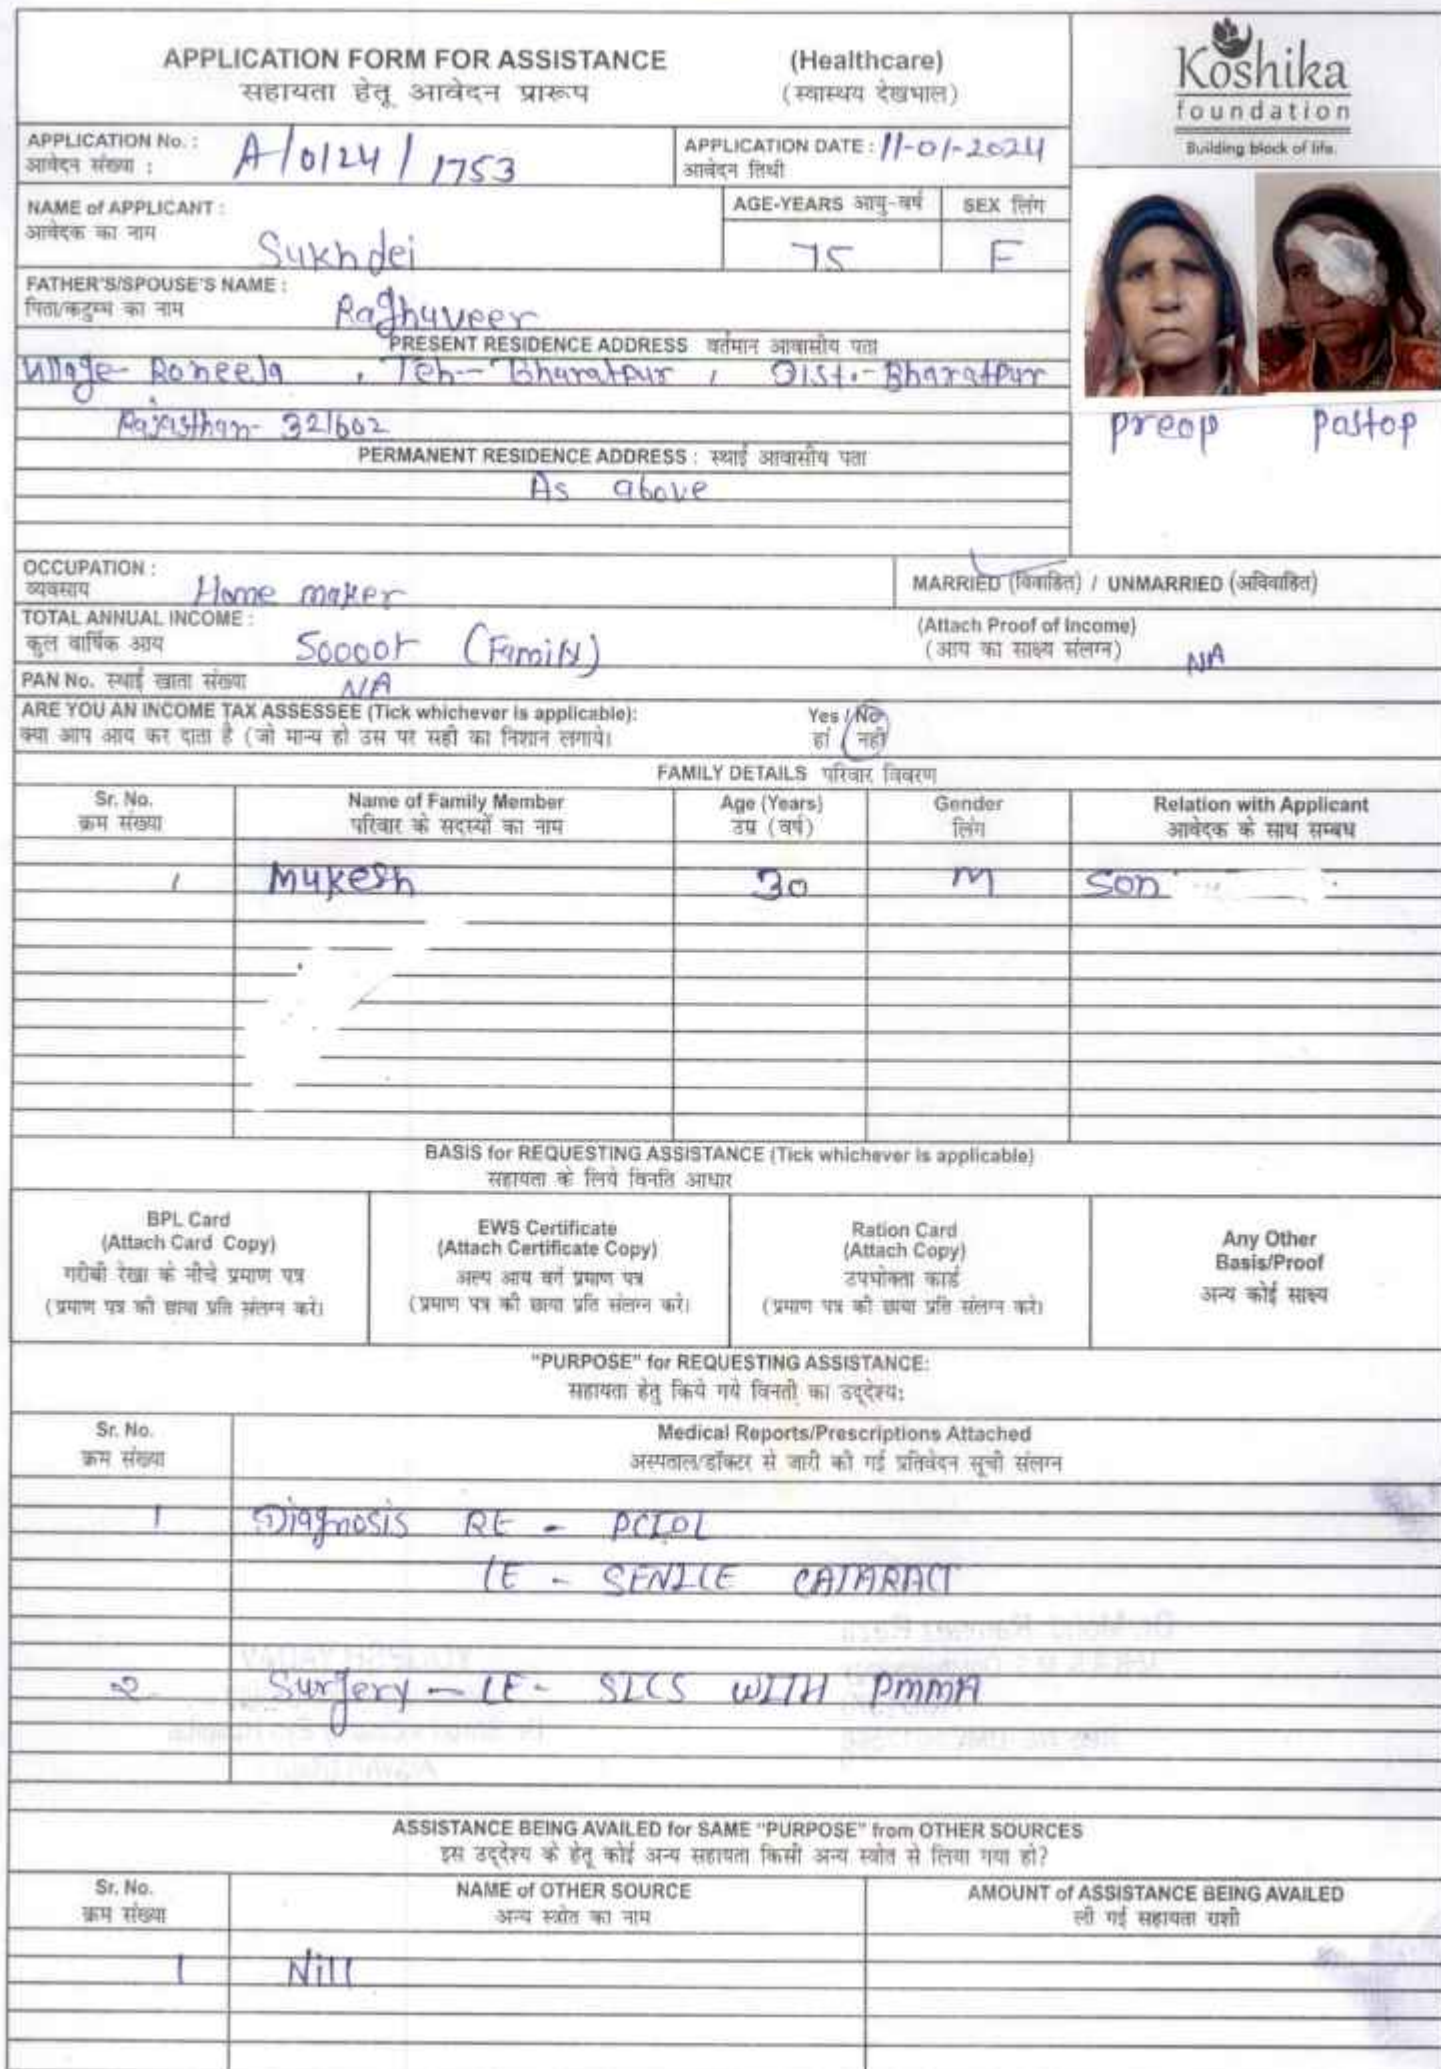 APPLICATION FORM FOR ASSISTANCE (Healthcare)
सहायता हेतू आवेदन प्रारूप (स्वास्थय देखभाल)
Koshika
foundation
Building block of life.
APPLICATION No. : A/0124/1753
आवेदन संख्या :
APPLICATION DATE : 11-01-2024
आवेदन तिथी
NAME of APPLICANT :
आवेदक का नाम
Sukhdei
AGE-YEARS आयु-वर्ष
75
SEX लिंग
F
FATHER'S/SPOUSE'S NAME :
पिता/कटुम्ब का नाम
Raghuveer
preop postop
PRESENT RESIDENCE ADDRESS वर्तमान आवासीय पता
Village- , Teh-- Bharatpur , Dist.- Bharatpur
Rajasthan- 321602
PERMANENT RESIDENCE ADDRESS : स्थाई आवासीय पता
As above
OCCUPATION :
व्यवसाय
Home maker
MARRIED (विवाहित) / UNMARRIED (अविवाहित)
TOTAL ANNUAL INCOME :
कुल वार्षिक आय
(Family)
(Attach Proof of Income)
(आय का साक्ष्य संलग्न)
NA
PAN No. स्थाई खाता संख्या
NA
ARE YOU AN INCOME TAX ASSESSEE (Tick whichever is applicable): Yes / No
क्या आप आय कर दाता है (जो मान्य हो उस पर सही का निशान लगाये। हां / नही
FAMILY DETAILS परिवार विवरण
Sr. No. Name of Family Member Age (Years) Gender Relation with Applicant
क्रम संख्या परिवार के सदस्यों का नाम उम्र (वर्ष) लिंग आवेदक के साथ सम्बध
1 Mukesh 30 M Son
BASIS for REQUESTING ASSISTANCE (Tick whichever is applicable)
सहायता के लिये विनति आधार
BPL Card
(Attach Card Copy)
गरीबी रेखा के नीचे प्रमाण पत्र
(प्रमाण पत्र की छाया प्रति संलग्न करे)
EWS Certificate
(Attach Certificate Copy)
अल्प आय वर्ग प्रमाण पत्र
(प्रमाण पत्र की छाया प्रति संलग्न करे)
Ration Card
(Attach Copy)
उपभोक्ता कार्ड
(प्रमाण पत्र की छाया प्रति संलग्न करे)
Any Other
Basis/Proof
अन्य कोई साक्ष्य
"PURPOSE" for REQUESTING ASSISTANCE:
सहायता हेतु किये गये विनती का उद्देश्य:
Sr. No. Medical Reports/Prescriptions Attached
क्रम संख्या अस्पताल/डॉक्टर से जारी की गई प्रतिवेदन सूची संलग्न
1 Diagnosis RE - PCIOL
LE - SENILE CATARACT
2 Surgery - LE- SICS WITH PMMA
ASSISTANCE BEING AVAILED for SAME "PURPOSE" from OTHER SOURCES
इस उद्देश्य के हेतू कोई अन्य सहायता किसी अन्य स्त्रोत से लिया गया हो?
Sr. No. NAME of OTHER SOURCE AMOUNT of ASSISTANCE BEING AVAILED
क्रम संख्या अन्य स्त्रोत का नाम ली गई सहायता राशी
1 Nill